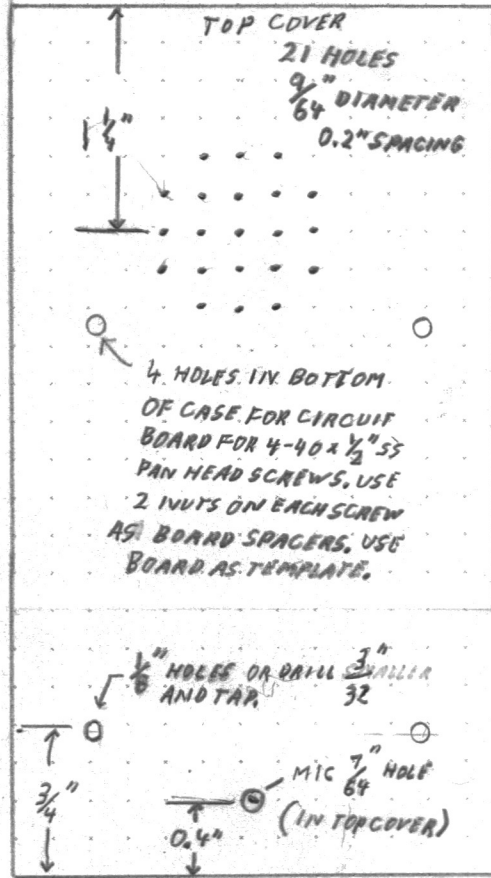 TOP COVER
21 HOLES
9/64" DIAMETER
0.2" SPACING
1 1/4"
4 HOLES IN BOTTOM
OF CASE FOR CIRCUIT
BOARD FOR 4-40 x 1/2" SS
PAN HEAD SCREWS. USE
2 NUTS ON EACH SCREW
AS BOARD SPACERS. USE
BOARD AS TEMPLATE.
1/8" HOLES OR DRILL SMALLER 3/32"
AND TAP.
3/4"
MIC 7/64" HOLE
(IN TOP COVER)
0.4"